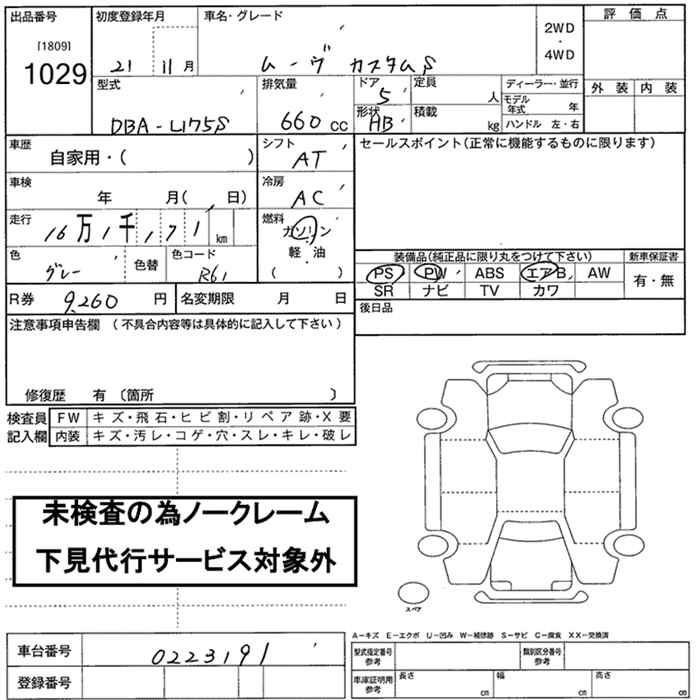 出品番号 初度登録年月 車名・グレード 2WD ・ 4WD 評価点
[1809]
1029 21 11月 ムーヴ カスタムS 外装 内装
型式 排気量 ドア 定員 ディーラー・並行
DBA-L175S 660cc 5 人 モデル年式 年
形状 積載 ハンドル 左・右
HB kg
車歴 自家用・( ) シフト AT セールスポイント(正常に機能するものに限ります)
車検 年 月( 日) 冷房 AC
走行 16万1千,171km 燃料 ガソリン
軽・油
( )
色 グレー 色替 色コード R61
装備品(純正品に限り丸をつけて下さい) 新車保証書
PS PW ABS エアB AW 有・無
SR ナビ TV カワ
R券 9,260円 名変期限 月 日 後日品
注意事項申告欄 (不具合内容等は具体的に記入して下さい)
修復歴 有 〔箇所 〕
検査員 FW キズ・飛石・ヒビ割・リペア跡・X要
記入欄 内装 キズ・汚レ・コゲ・穴・スレ・キレ・破レ
未検査の為ノークレーム
下見代行サービス対象外
スペア
A−キズ E−エクボ U−凹み W−補修跡 S−サビ C−腐食 XX−交換済
車台番号 0223191 型式指定番号 参考 類別区分番号 参考
登録番号 車庫証明用 参考 長さ cm 幅 cm 高さ cm